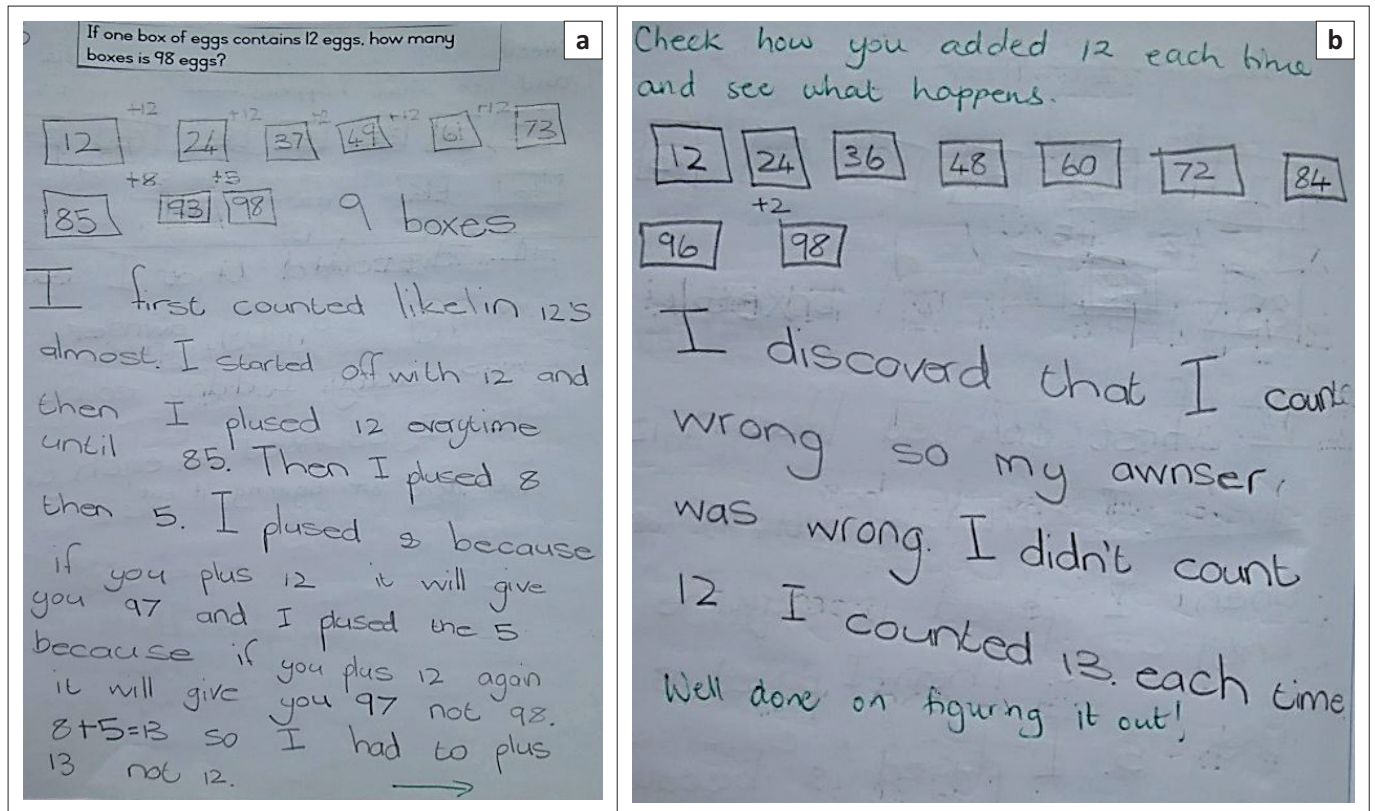 If one box of eggs contains 12 eggs, how many
boxes is 98 eggs?
a
+12 +12 +12 +12 +12
12 24 37 49 61 73
+8 +5
85 93 98 9 boxes
I first counted like in 12's
almost. I started off with 12 and
then I plused 12 everytime
until 85. Then I plused 8
then 5. I plused 8 because
if you plus 12 it will give
you 97 and I plused the 5
because if you plus 12 again
it will give you 97 not 98.
8+5=13 so I had to plus
13 not 12.
b
Check how you added 12 each time
and see what happens.
12 24 36 48 60 72 84
+2
96 98
I discoverd that I
wrong so my awnser
was wrong. I didn't count
12 I counted 13. each time
Well done on figuring it out!